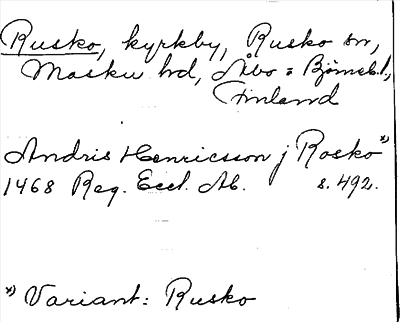 Rusko, kyrkby, Rusko sn,
Masku hd, Åbo=Björneb.l,
Finland
Andris Henricsson j Rosko *)
1468 Reg. Eccl. Ab. s. 492.
*) Variant: Rusko